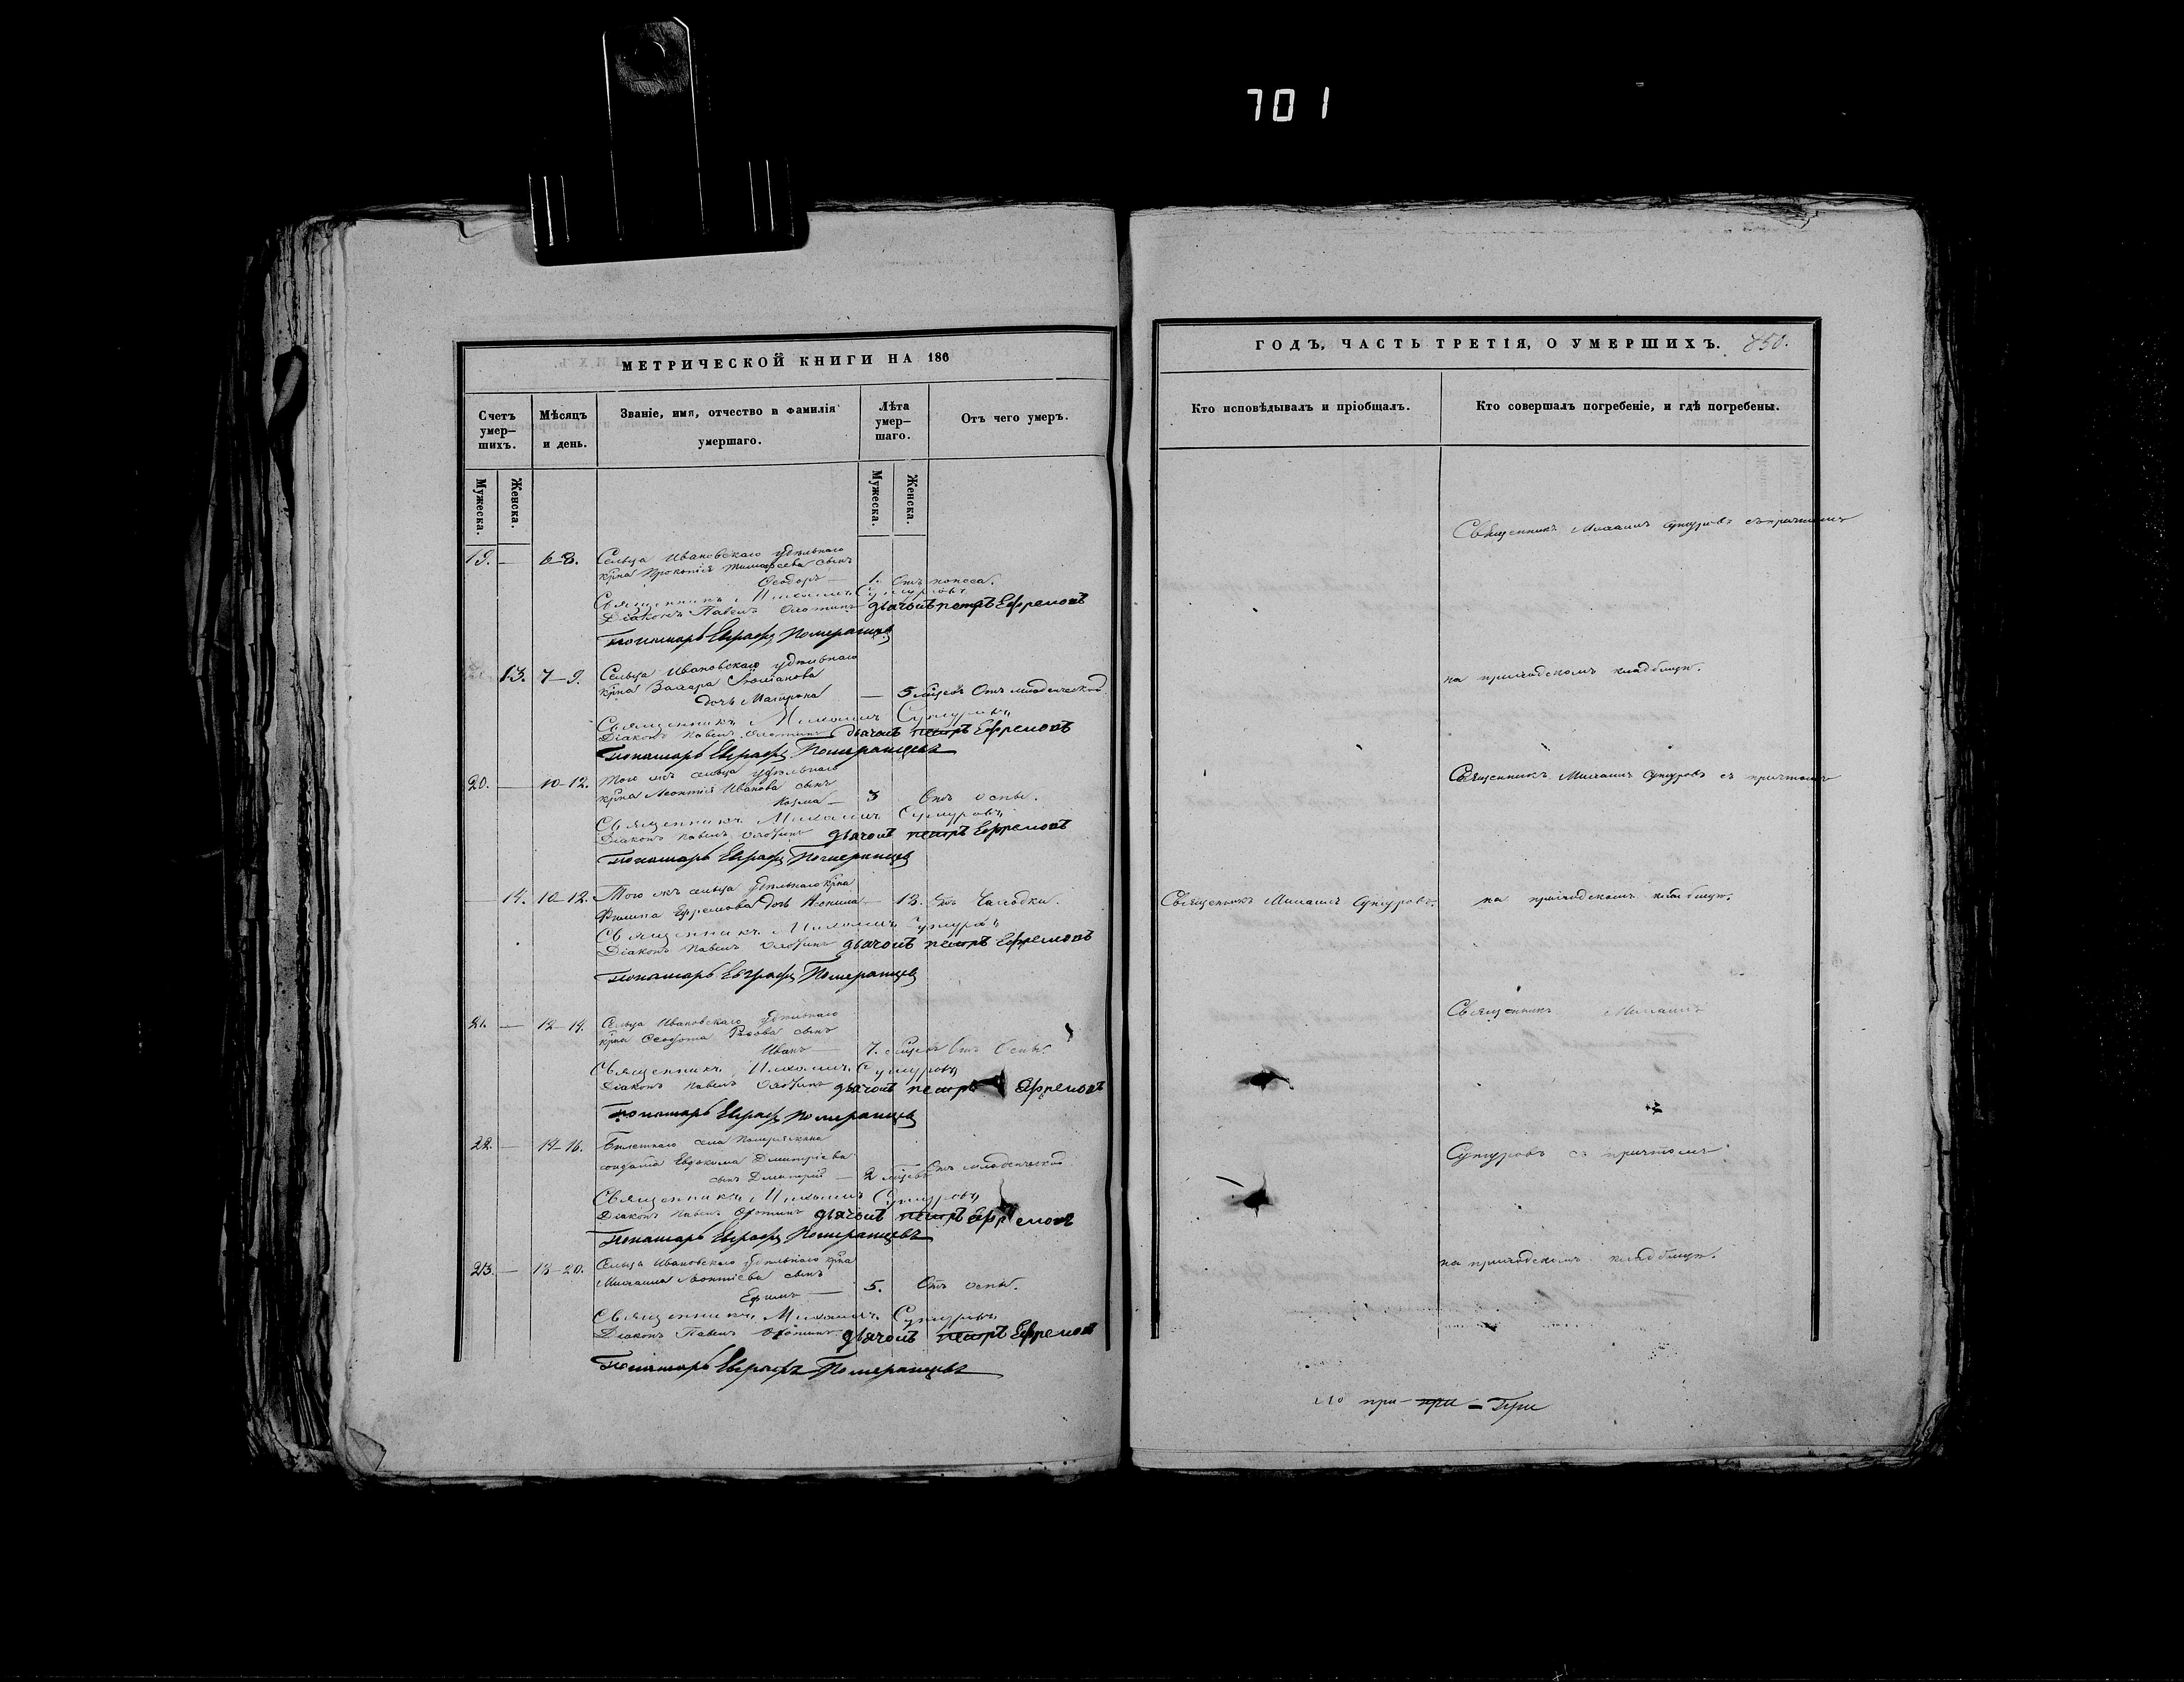 701
МЕТРИЧЕСКОЙ КНИГИ НА 186
Счетъ умер–шихъ.
Мѣсяцъ и день.
Званіе, имя, отчество и фамилія умершаго.
Лѣта умер–шаго.
Отъ чего умеръ.
Мужеска.
Женска.
Мужеска.
Женска.
19. — 6–8. Сельца Ивановскаго удѣльнаго
крна Прокопія Тимофеева сынъ
Ѳеодоръ — 1. Отъ поноса.
Священникъ Михаилъ Сунгуровъ
Діаконъ Павелъ дьячокъ петръ Ефремовъ
Пономарь Евграфъ Померанцевъ
13. 7–9. Сельца Ивановскаго удѣльнаго
крна Захара
дочь Матрона — 5 мцевъ Отъ младенческой
Священникъ Михаилъ Сунгуровъ
Діаконъ Павелъ дьячокъ петръ Ефремовъ
Пономарь Евграфъ Померанцевъ
20. — 10–12. Того жъ сельца удѣльнаго
крна Леонтія Иванова сынъ
Козма — 3 Отъ оспы.
Священникъ Михаилъ Сунгуровъ
Діаконъ Павелъ дьячокъ петръ Ефремовъ
Пономарь Евграфъ Померанцевъ
14. 10–12. Того жъ сельца удѣльнаго крна
Филипа Ефремова дочь — 13. Отъ Чаходки.
Священникъ Михаилъ Сунгуровъ
Діаконъ Павелъ дьячокъ петръ Ефремовъ
Пономарь Евграфъ Померанцевъ
21. — 12–14. Сельца Ивановскаго удѣльнаго
крна сынъ
Иванъ — 7. мцевъ Отъ Оспы.
Священникъ Михаилъ Сунгуровъ
Діаконъ Павелъ дьячокъ петръ Ефремовъ
Пономарь Евграфъ Померанцевъ
22. — 14–16. Билетнаго села
солдата Евдокима Дмитріева
сынъ Дмитрій — 2 мцевъ Отъ младенческой
Священникъ Михаилъ Сунгуровъ
Діаконъ Павелъ дьячокъ петръ Ефремовъ
Пономарь Евграфъ Померанцевъ
23. — 18–20. Сельца Ивановскаго удѣльнаго крна
Михаила Леонтіева сынъ
Ефимъ — 5. Отъ оспы.
Священникъ Михаилъ Сунгуровъ
Діаконъ Павелъ дьячокъ петръ Ефремовъ
Пономарь Евграфъ Померанцевъ
ГОДЪ, ЧАСТЬ ТРЕТІЯ, О УМЕРШИХЪ. 850.
Кто исповѣдывалъ и пріобщалъ.
Кто совершалъ погребеніе, и гдѣ погребены.
Священникъ Михаилъ Сунгуровъ съ причтомъ
на приходскомъ кладбищѣ.
Священникъ Михаилъ Сунгуровъ съ причтомъ
Священникъ Михаилъ Сунгуровъ. на приходскомъ кладбищѣ.
Священникъ Михаилъ
Сунгуровъ съ причтомъ
на приходскомъ кладбищѣ.
при – при = При